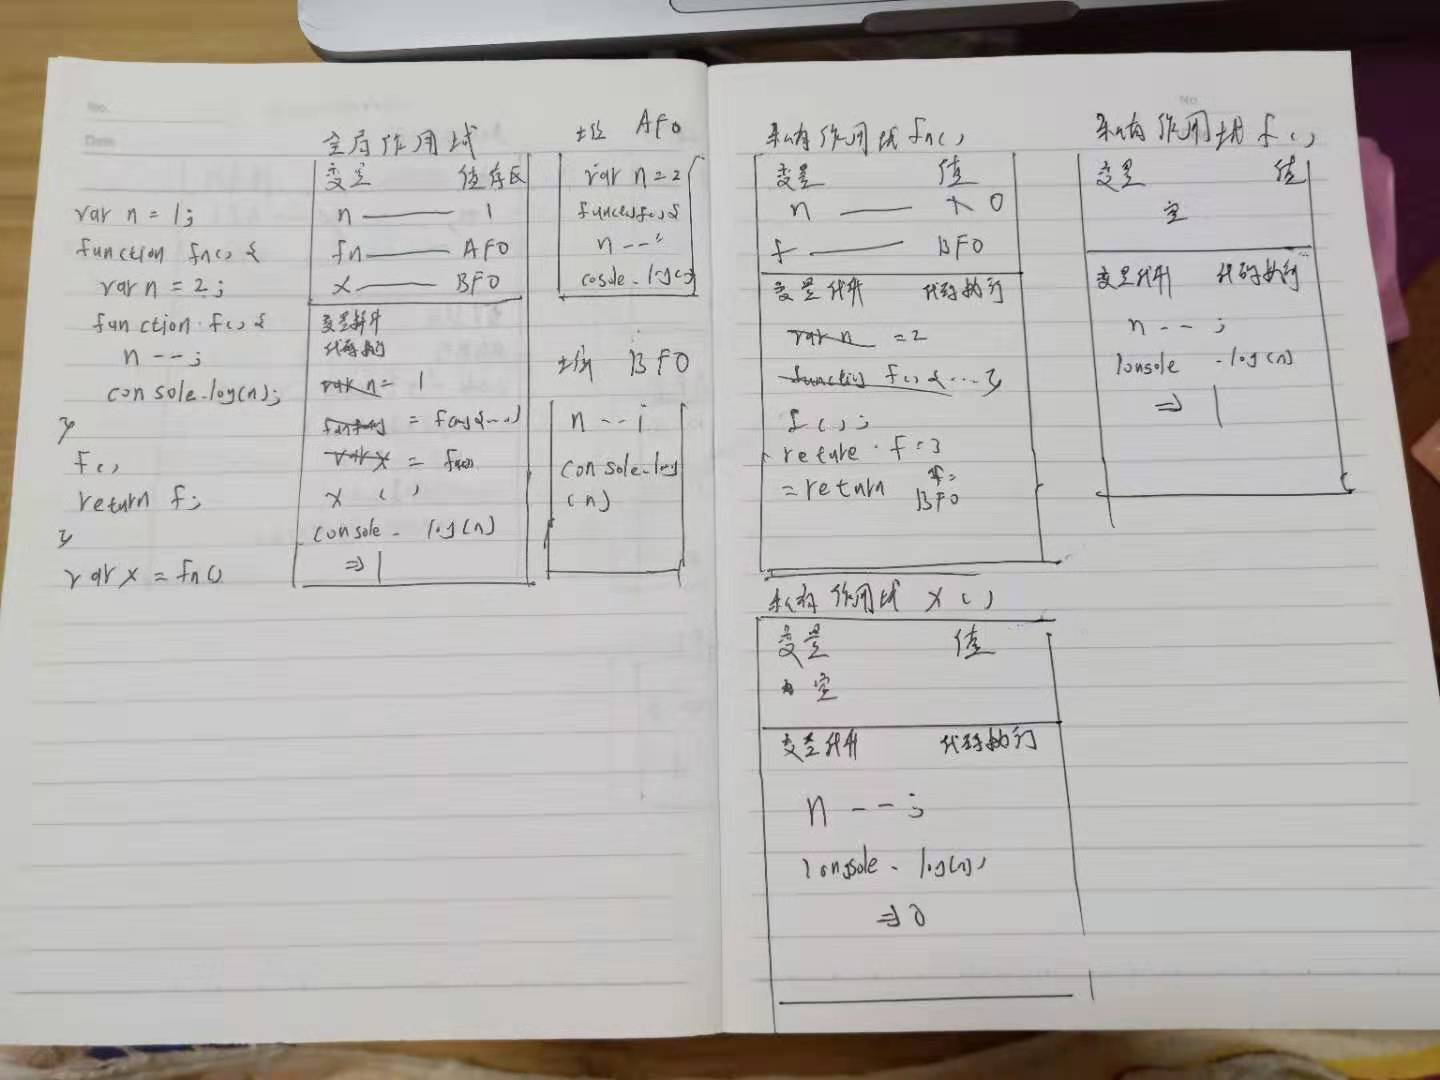 No.
Date
var n = 1;
function fn() {
var n = 2;
function f() {
n --;
console.log(n);
}
f()
return f;
}
var x = fn()
全局作用域
变量 值存区
n —— 1
fn —— AF0
x —— BF0
变量提升
代码执行
var n = 1
= f() {...}
var x = fn()
x ()
console.log(n)
=> 1
堆 AF0
var n = 2
n --;
console.log()
堆 BF0
n -- ;
console.log
(n)
No.
私有作用域 fn()
变量 值
n —— 0
f —— BF0
变量提升 代码执行
var n = 2
function f() {...}
f();
return f;
= return f;
BF0
私有作用域 f()
变量 值
空
变量提升 代码执行
n -- ;
console.log(n)
=> 1
私有作用域 x()
变量 值
空
变量提升 代码执行
n -- ;
console.log(n)
=> 0